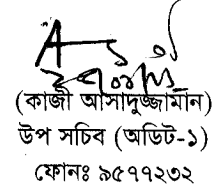 (কাজী আসাদুজ্জামান)
উপ সচিব (অডিট-১)
ফোনঃ ৯৫৭৭২৩২